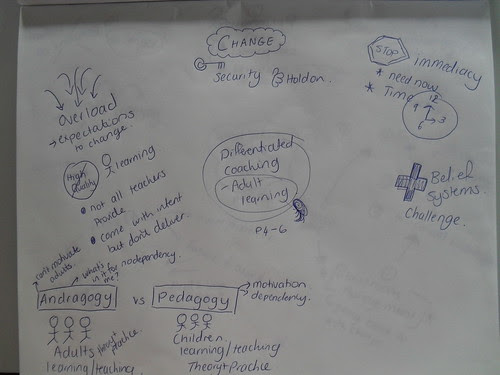 CHANGE
Security & Holdon.
STOP
immediacy
* need now
* Time
12
9
3
6
overload
→ expectations
to change.
High
Quality
learning
• not all teachers
Provide
• come with intent
but don't deliver.
Differentiated
coaching
- Adult
learning
P4-6
Belief
Systems
Challenge.
can't motivate
adults.
→ what's
in it for
me?
no dependency.
Andragogy
vs
Pedagogy
→ motivation
dependency.
Adults
theory +
practice
learning/teaching
Children
learning/teaching
Theory + Practice